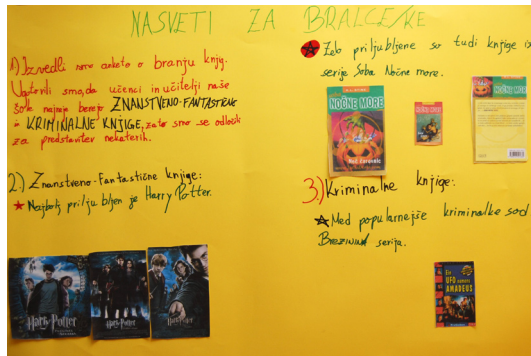 NASVETI ZA BRALCE/KE
1.) Izvedli smo anketo o branju knjig.
Ugotovili smo, da učenci in učitelji naše
šole najraje berejo ZNANSTVENO-FANTASTIČNE
in KRIMINALNE KNJIGE, zato smo se odločili
za predstavitev nekaterih.
2.) Znanstveno-Fantastične knjige:
Najbolj priljubljen je Harry Potter.
Harry Potter
Harry Potter
Harry Potter
Zelo priljubljene so tudi knjige iz
serije Soba Nočne more.
NOČNE MORE
NOČNE MORE
NOČNE MORE
3.) Kriminalne knjige:
Med popularnejše kriminalke sodi
serija.
UFO
AMADEUS